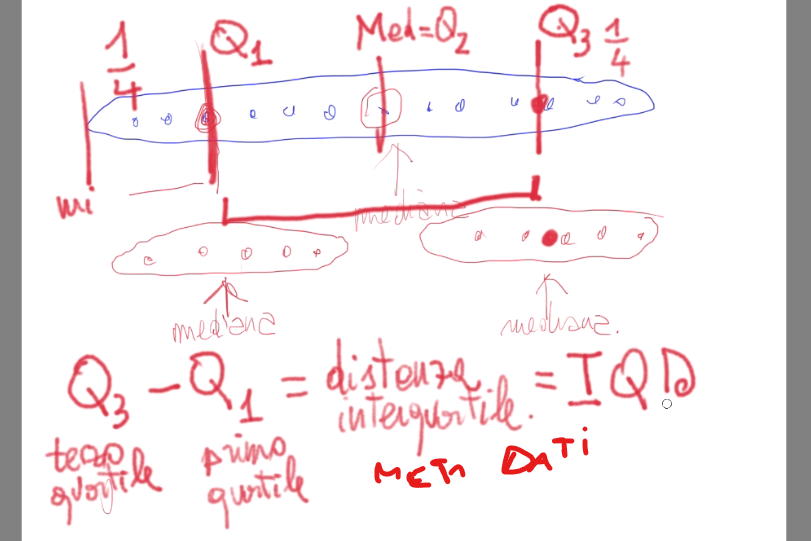 1/4 Q1 Med=Q2 Q3 1/4
mi
mediana
mediana mediana.
Q3 - Q1 = distanza interquartile. = IQD
terzo quartile primo qurtile
METÀ DATI